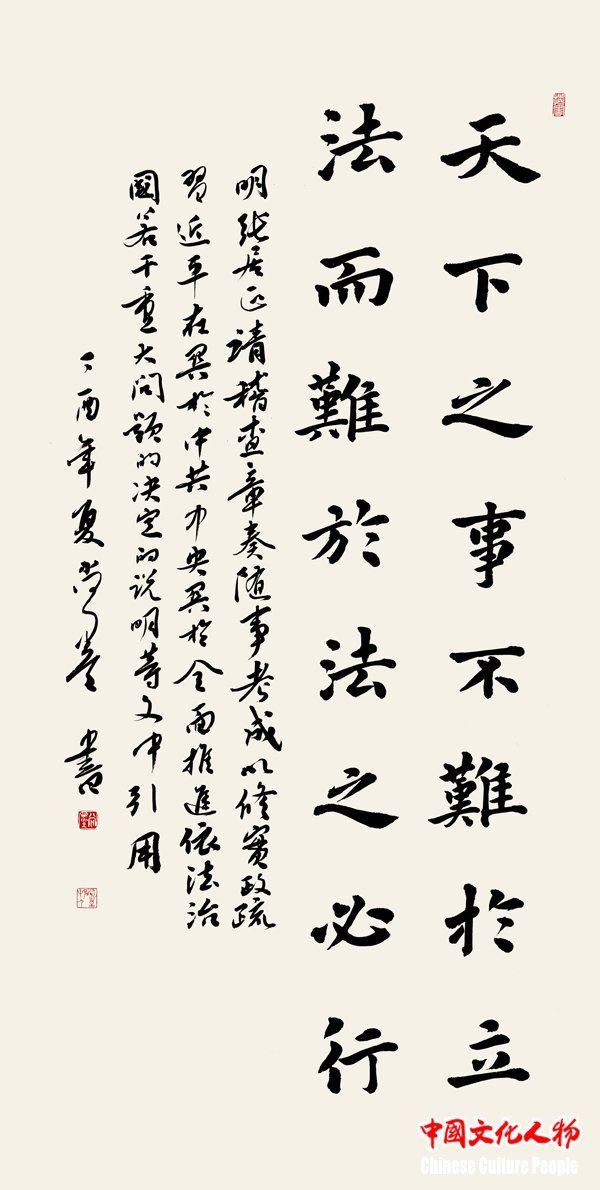 天下之事不難於立
法而難於法之必行
明張居正請稽查章奏随事考成以修實政疏
習近平在関於中共中央関於全面推進依法治
國若干重大问题的决定的说明等文中引用
丁酉年夏 書
中國文化人物
Chinese Culture People